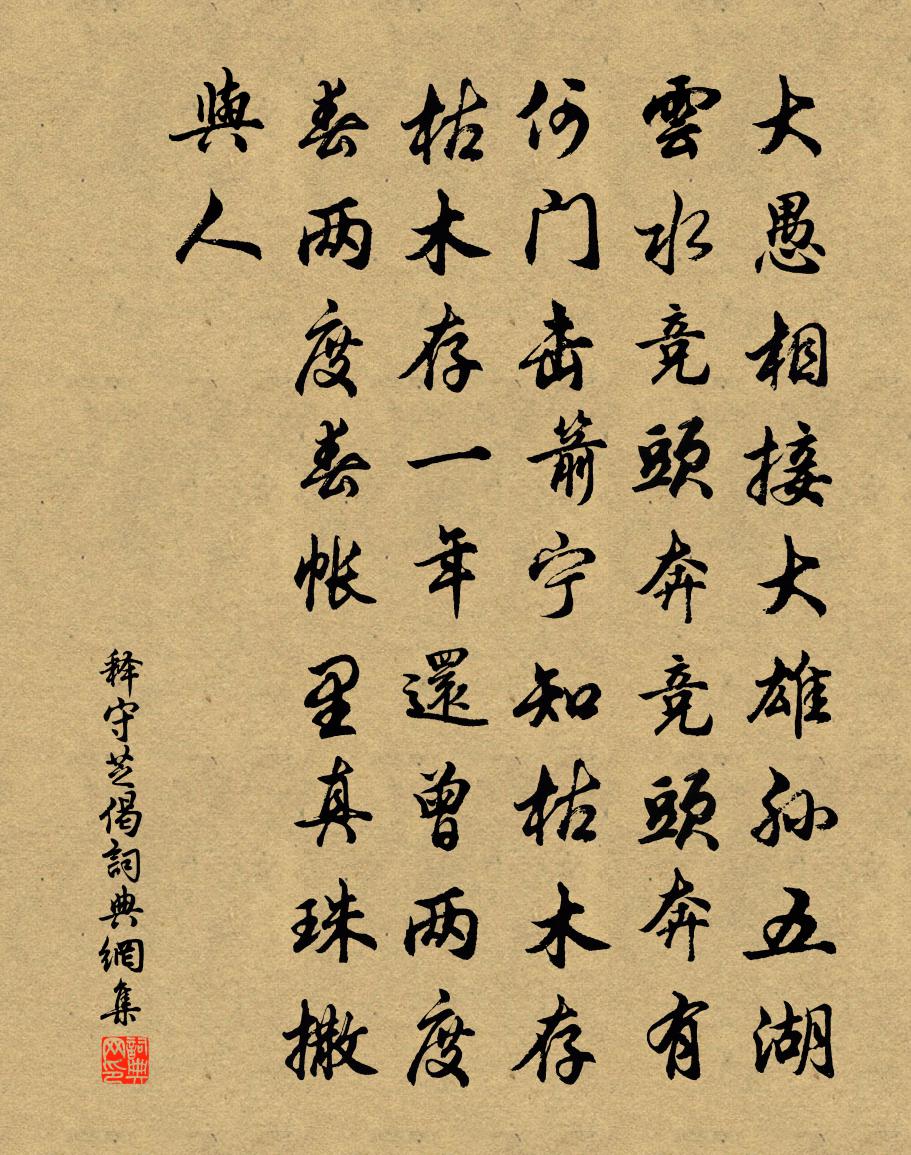 大愚相接大雄孙五湖
雲水竞頭奔竞頭奔有
何门击箭宁知枯木存
枯木存一年還曾两度
春两度春帐里真珠撒
與人
释守芝偈詞典網集
詞典网印